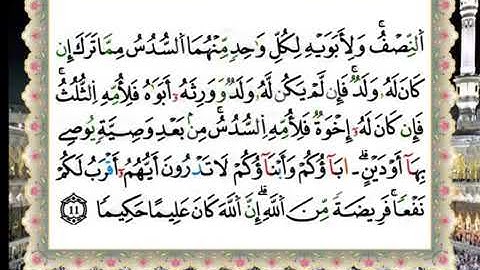 اَ۬لنِّصْفُۖ وَلِأَبَوَيْهِ لِكُلِّ وَٰحِدٖ مِّنْهُمَا اَ۬لسُّدُسُ مِمَّا تَرَكَ إِن
كَانَ لَهُۥ وَلَدٞۖ فَإِن لَّمْ يَكُن لَّهُۥ وَلَدٞ وَوَرِثَهُۥٓ أَبَوَٰهُ فَلِأُمِّهِ اِ۬لثُّلُثُۖ
فَإِن كَانَ لَهُۥٓ إِخْوَةٞ فَلِأُمِّهِ اِ۬لسُّدُسُۖ مِنۢ بَعْدِ وَصِيَّةٖ يُوصِے
بِهَآ أَوْ دَيْنٍۖ ـ ابَآؤُكُمْ وَأَبْنَآؤُكُمْ لَا تَدْرُونَ أَيُّهُمُۥٓ أَقْرَبُ لَكُمْ
نَفْعاٗۖ فَرِيضَةٗ مِّنَ اَ۬للَّهِۖ إِنَّ اَ۬للَّهَ كَانَ عَلِيماً حَكِيماٗ 11